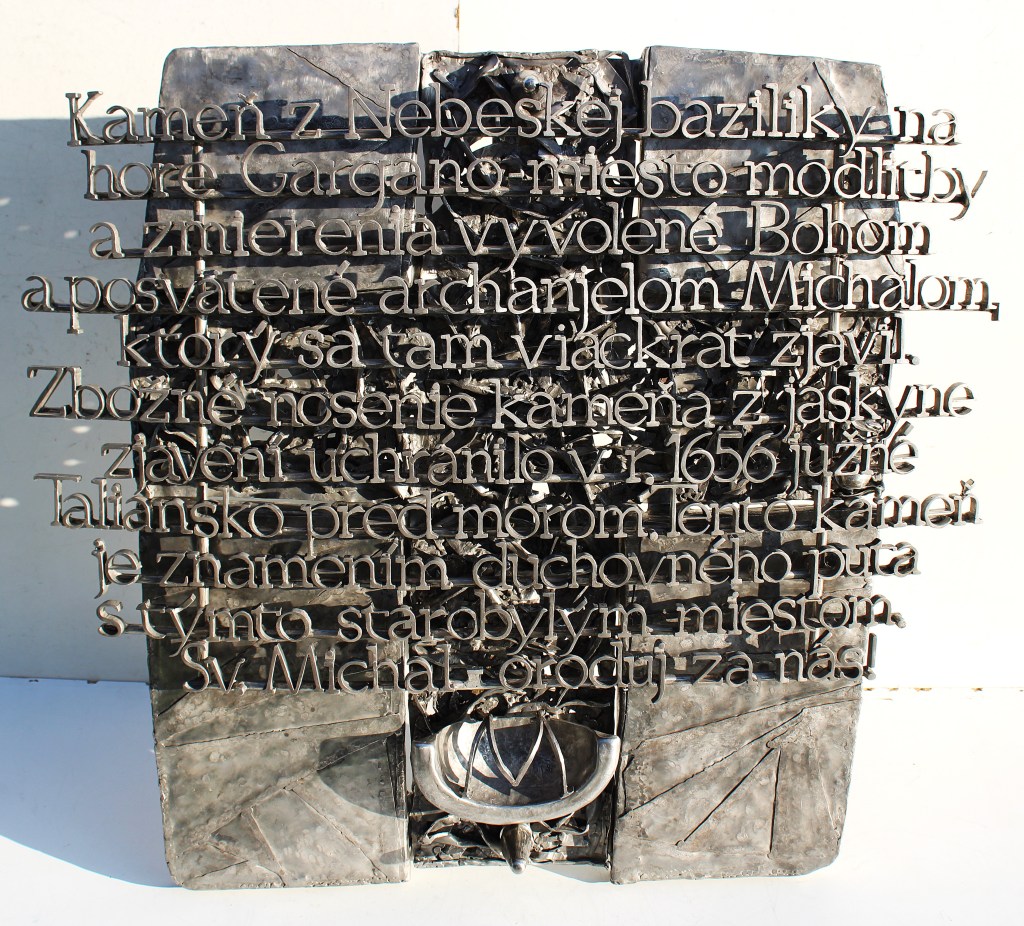 Kameň z Nebeskej baziliky na
hore Gargano-miesto modlitby
a zmierenia vyvolené Bohom
a posvätené archanjelom Michalom,
ktorý sa tam viackrát zjavil.
Zbožné nosenie kameňa z jaskyne
zjavení uchránilo v r. 1656 južné
Taliansko pred morom. Tento kameň
je znamením duchovného puta
s týmto starobylým miestom.
Sv. Michal - oroduj za nás!